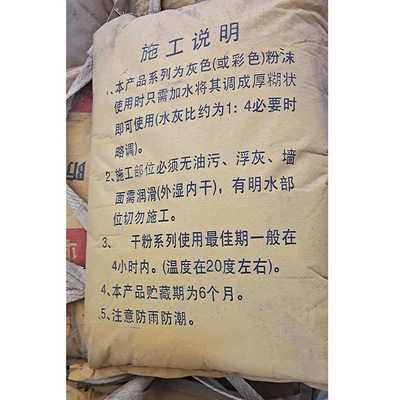 施工说明
1、本产品系列为灰色(或彩色)粉沫
使用时只需加水将其调成厚糊状
即可使用(水灰比约为1:4必要时
略调)。
2、施工部位必须无油污、浮灰、墙
面需润滑(外湿内干),有明水部
位切勿施工。
3、 干粉系列使用最佳期一般在
4小时内。(温度在20度左右)。
4、本产品贮藏期为6个月。
5、注意防雨防潮。